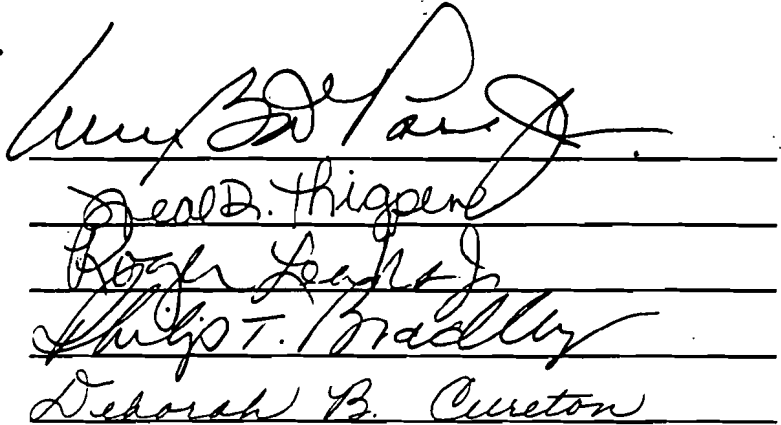 Neal D. Thigpen
Roger Leaks Jr
Philip T. Bradley
Deborah B. Cureton